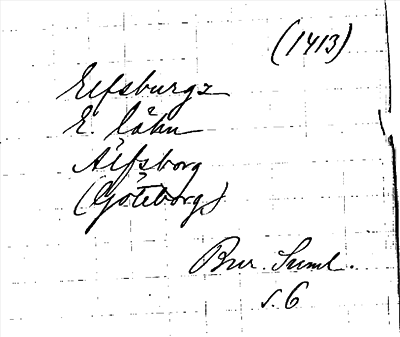 (1413)
Elfsburgz
E. lähn
Älfsborg
(Göteborgs)
Bur. Suml.
s. 6